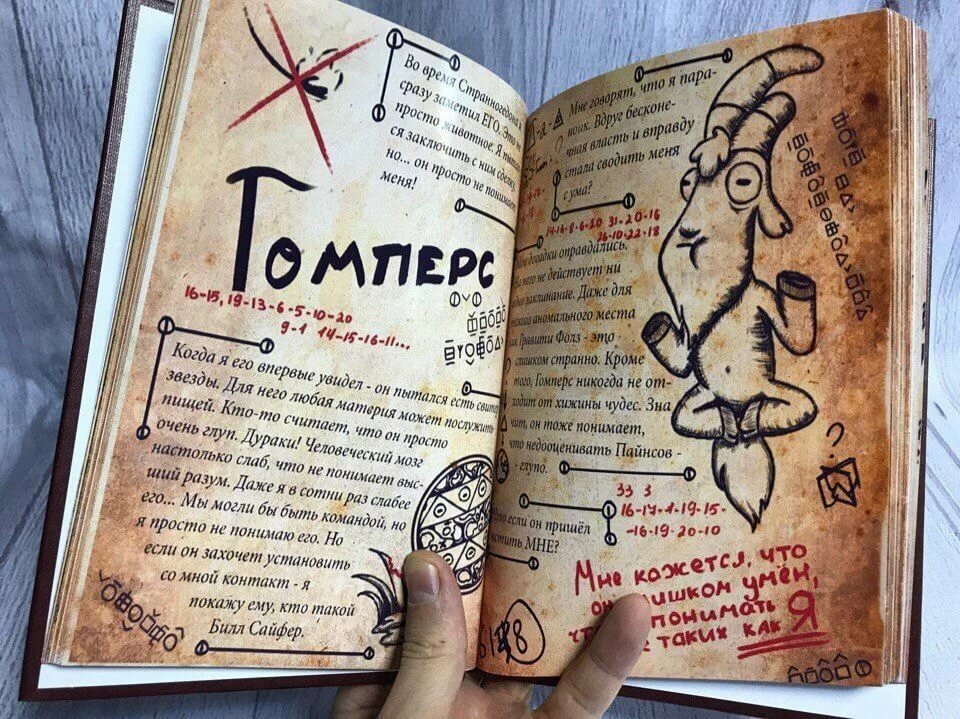 Во время
сразу заметил ЕГО. Это не
просто животное. Я
ся заключить с ним сделку,
но... он просто не понимает
меня!
Гомперс
16-15, 19-13-6-5-10-20
9-1 14-15-16-11...
Когда я его впервые увидел - он пытался есть
звезды. Для него любая материя может послужить
пищей. Кто-то считает, что он просто
очень глуп. Дураки! Человеческий мозг
настолько слаб, что не понимает выс-
ший разум. Даже я в сотни раз слабее
его... Мы могли бы быть командой, но
я просто не понимаю его. Но
если он захочет установить
со мной контакт - я
покажу ему, кто такой
Билл Сайфер.
Мне говорят, что я пара-
ноик. Вдруг бесконе-
чная власть и вправду
стала сводить меня
с ума?
14-16-8-6-20 31-20-16
26-10-22-18
догадки оправдались.
На него не действует ни
одно заклинание. Даже для
такого аномального места
как Гравити Фолз - это
слишком странно. Кроме
того, Гомперс никогда не от-
ходит от хижины чудес. Зна
чит, он тоже понимает,
что недооценивать Пайнсов -
- глупо.
33 3
16-17-1-19-15-
-16-19-20-10
если он пришёл
МНЕ?
Мне кажется, что
он умён,
понимать
таких как Я